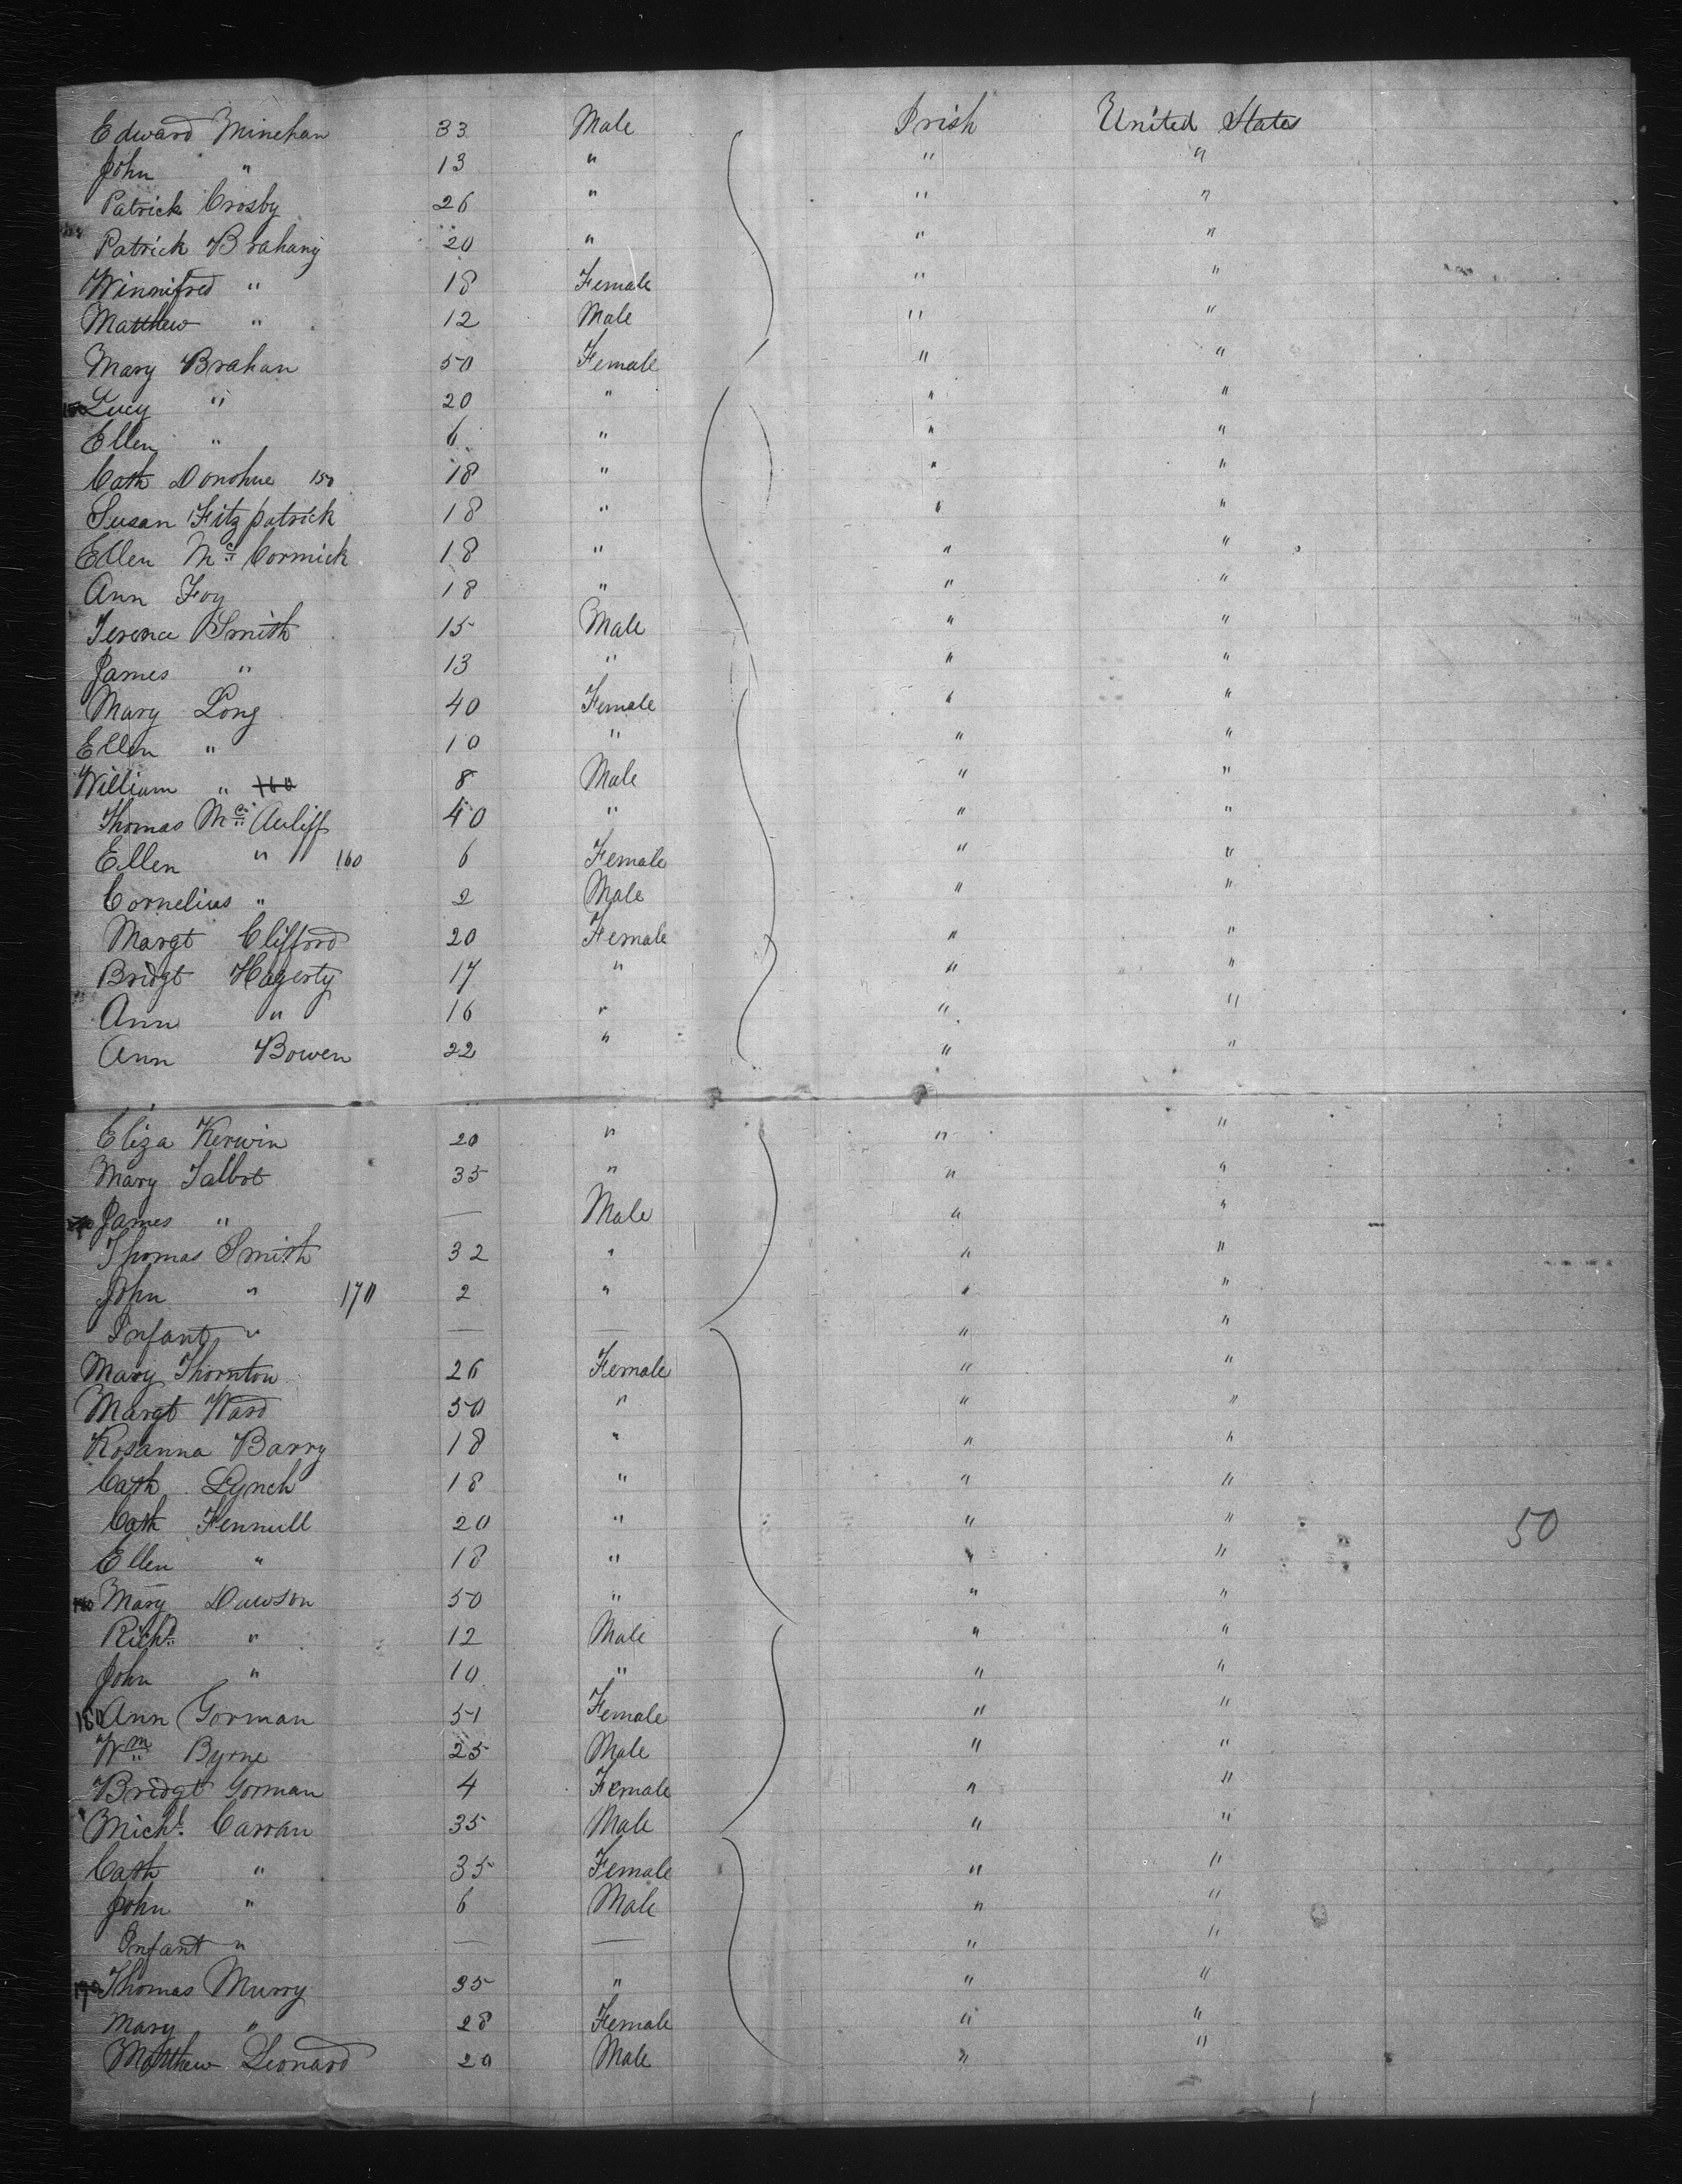 Edward Minehan 33 Male Irish United States
John " 13 " " "
Patrick Crosby 26 " " "
Patrick Brahany 20 " " "
Winnifred " 18 Female " "
Matthew " 12 Male " "
Mary Brahan 50 Female " "
Lucy " 20 " " "
Ellen " 6 " " "
Cath Donohue 150 18 " " "
Susan Fitzpatrick 18 " " "
Ellen Mc Cormick 18 " " "
Ann Foy 18 " " "
Terence Smith 15 Male " "
James " 13 " " "
Mary Long 40 Female " "
Ellen " 10 " " "
William " 160 8 Male " "
Thomas Mc Auliff 40 " " "
Ellen " 160 6 Female " "
Cornelius " 2 Male " "
Margt Clifford 20 Female " "
Bridgt Hagerty 17 " " "
Ann " 16 " " "
Ann Bowen 22 " " "
Eliza Kerwin 20 " " "
Mary Talbot 35 " " "
James " — Male " "
Thomas Smith 32 " " "
John " 170 2 " " "
Infant " — — " "
Mary Thornton 26 Female " "
Margt Ward 50 " " "
Rosanna Barry 18 " " "
Cath Lynch 18 " " "
Cath Fennell 20 " " " 50
Ellen " 18 " " "
Mary Dawson 50 " " "
Richd " 12 Male " "
John " 10 " " "
180 Ann Gorman 51 Female " "
Wm Byrne 25 Male " "
Bridgt Gorman 4 Female " "
Michl Carran 35 Male " "
Cath " 35 Female " "
John " 6 Male " "
Infant " — — " "
Thomas Murry 35 " " "
Mary " 28 Female " "
Matthew Leonard 20 Male " "